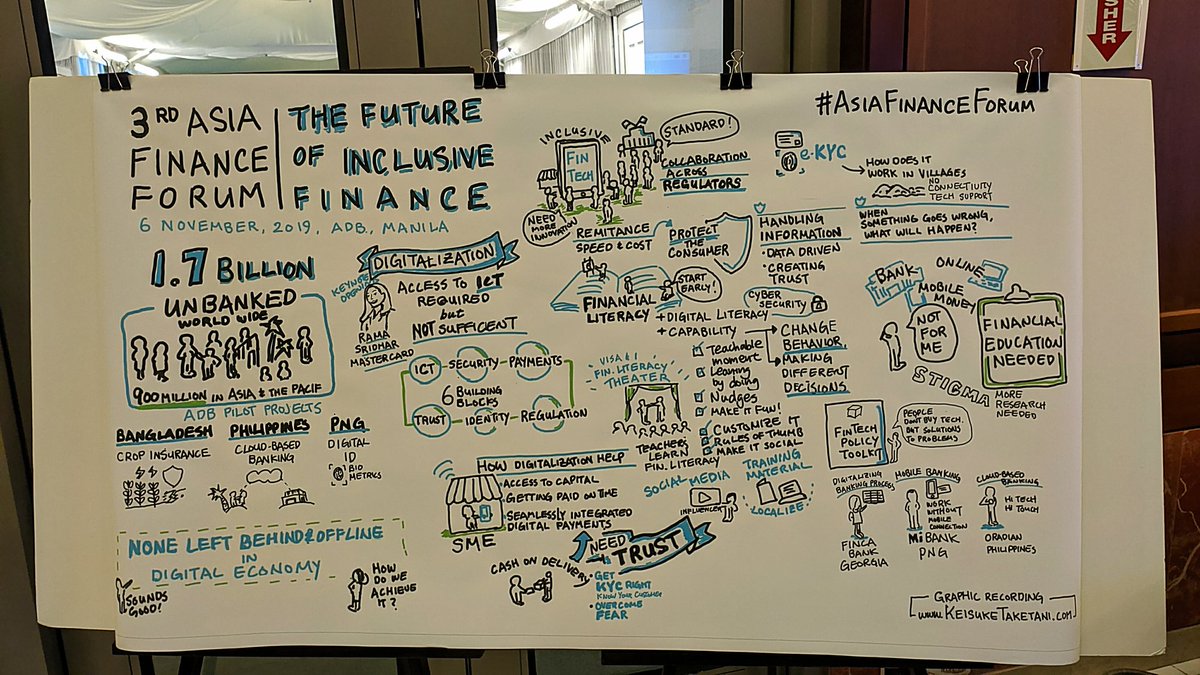 SHER
3RD ASIA
FINANCE
FORUM
THE FUTURE
OF INCLUSIVE
FINANCE
6 NOVEMBER, 2019, ADB, MANILA
#ASIAFINANCEFORUM
1.7 BILLION
UNBANKED
WORLD WIDE
900 MILLION IN ASIA & THE PACIF
ADB PILOT PROJECTS
BANGLADESH
CROP INSURANCE
PHILIPPINES
CLOUD-BASED
BANKING
PNG
DIGITAL
ID
BIO
METRICS
NONE LEFT BEHIND & OFFLINE
IN
DIGITAL ECONOMY
SOUNDS
GOOD!
HOW
DO WE
ACHIEVE
IT?
DIGITALIZATION
KEYNOTE
RAMA
SRIDHAR
MASTERCARD
ACCESS TO ICT
REQUIRED
but
NOT SUFFICIENT
ICT - SECURITY - PAYMENTS
6 BUILDING
BLOCKS
TRUST - IDENTITY - REGULATION
HOW DIGITALIZATION HELP
ACCESS TO CAPITAL
GETTING PAID ON TIME
SEAMLESSLY INTEGRATED
DIGITAL PAYMENTS
SME
CASH ON DELIVERY
NEED
TRUST
• GET
KYC RIGHT
KNOW YOUR CUSTOMER
• OVERCOME
FEAR
INCLUSIVE
FIN
TECH
NEED
MORE
INNOVATION
STANDARD!
COLLABORATION
ACROSS
REGULATORS
REMITANCE
SPEED & COST
PROTECT
THE
CONSUMER
HANDLING
INFORMATION
• DATA DRIVEN
• CREATING
TRUST
e-KYC
HOW DOES IT
WORK IN VILLAGES
NO
CONNECTIVITY
TECH SUPPORT
WHEN
SOMETHING GOES WRONG,
WHAT WILL HAPPEN?
FINANCIAL
LITERACY
START
EARLY!
+ DIGITAL LITERACY
+ CAPABILITY
CYBER
SECURITY
CHANGE
BEHAVIOR
MAKING
DIFFERENT
DECISIONS
VISA &
FIN. LITERACY
THEATER
TEACHERS
LEARN
FIN. LITERACY
Teachable
moment
Learning
by doing
Nudges
MAKE IT FUN!
CUSTOMIZE IT
RULES OF THUMB
MAKE IT SOCIAL
SOCIAL MEDIA
INFLUENCER
TRAINING
MATERIAL
LOCALIZE
BANK
ONLINE
MOBILE
MONEY
NOT
FOR
ME
STIGMA
FINANCIAL
EDUCATION
NEEDED
MORE
RESEARCH
NEEDED
FINTECH
POLICY
TOOLKIT
PEOPLE
DON'T BUY TECH.
BUT SOLUTIONS
TO PROBLEMS
DIGITALIZING
BANKING PROCESS
FINCA
BANK
GEORGIA
MOBILE BANKING
WORK
WITHOUT
MOBILE
CONNECTION
MiBANK
PNG
CLOUD-BASED
BANKING
HI TECH
HI TOUCH
ORADIAN
PHILIPPINES
GRAPHIC RECORDING
www.KEISUKETAKETANI.COM